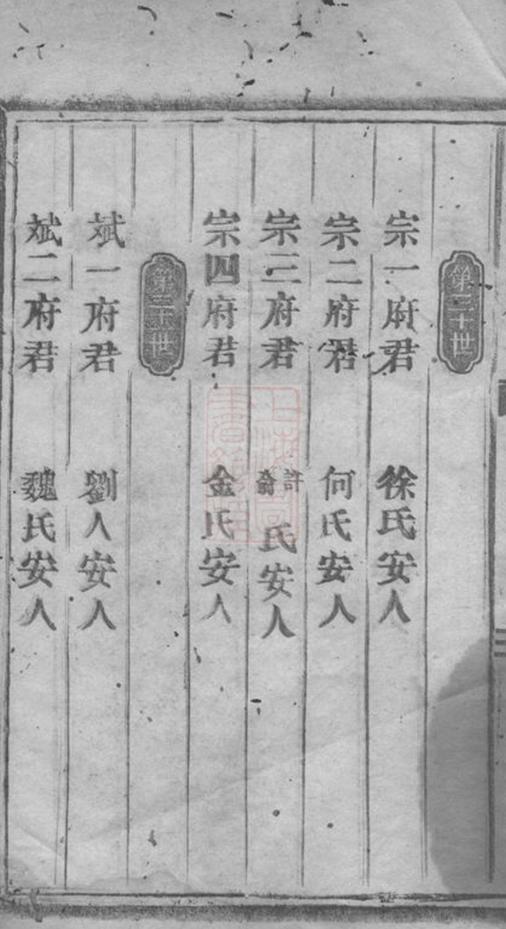 第十世
宗一府君 徐氏安人
宗二府君 何氏安人
宗三府君 許翁氏安人
宗四府君 金氏安人
第世
斌一府君 劉人安人
斌二府君 魏氏安人